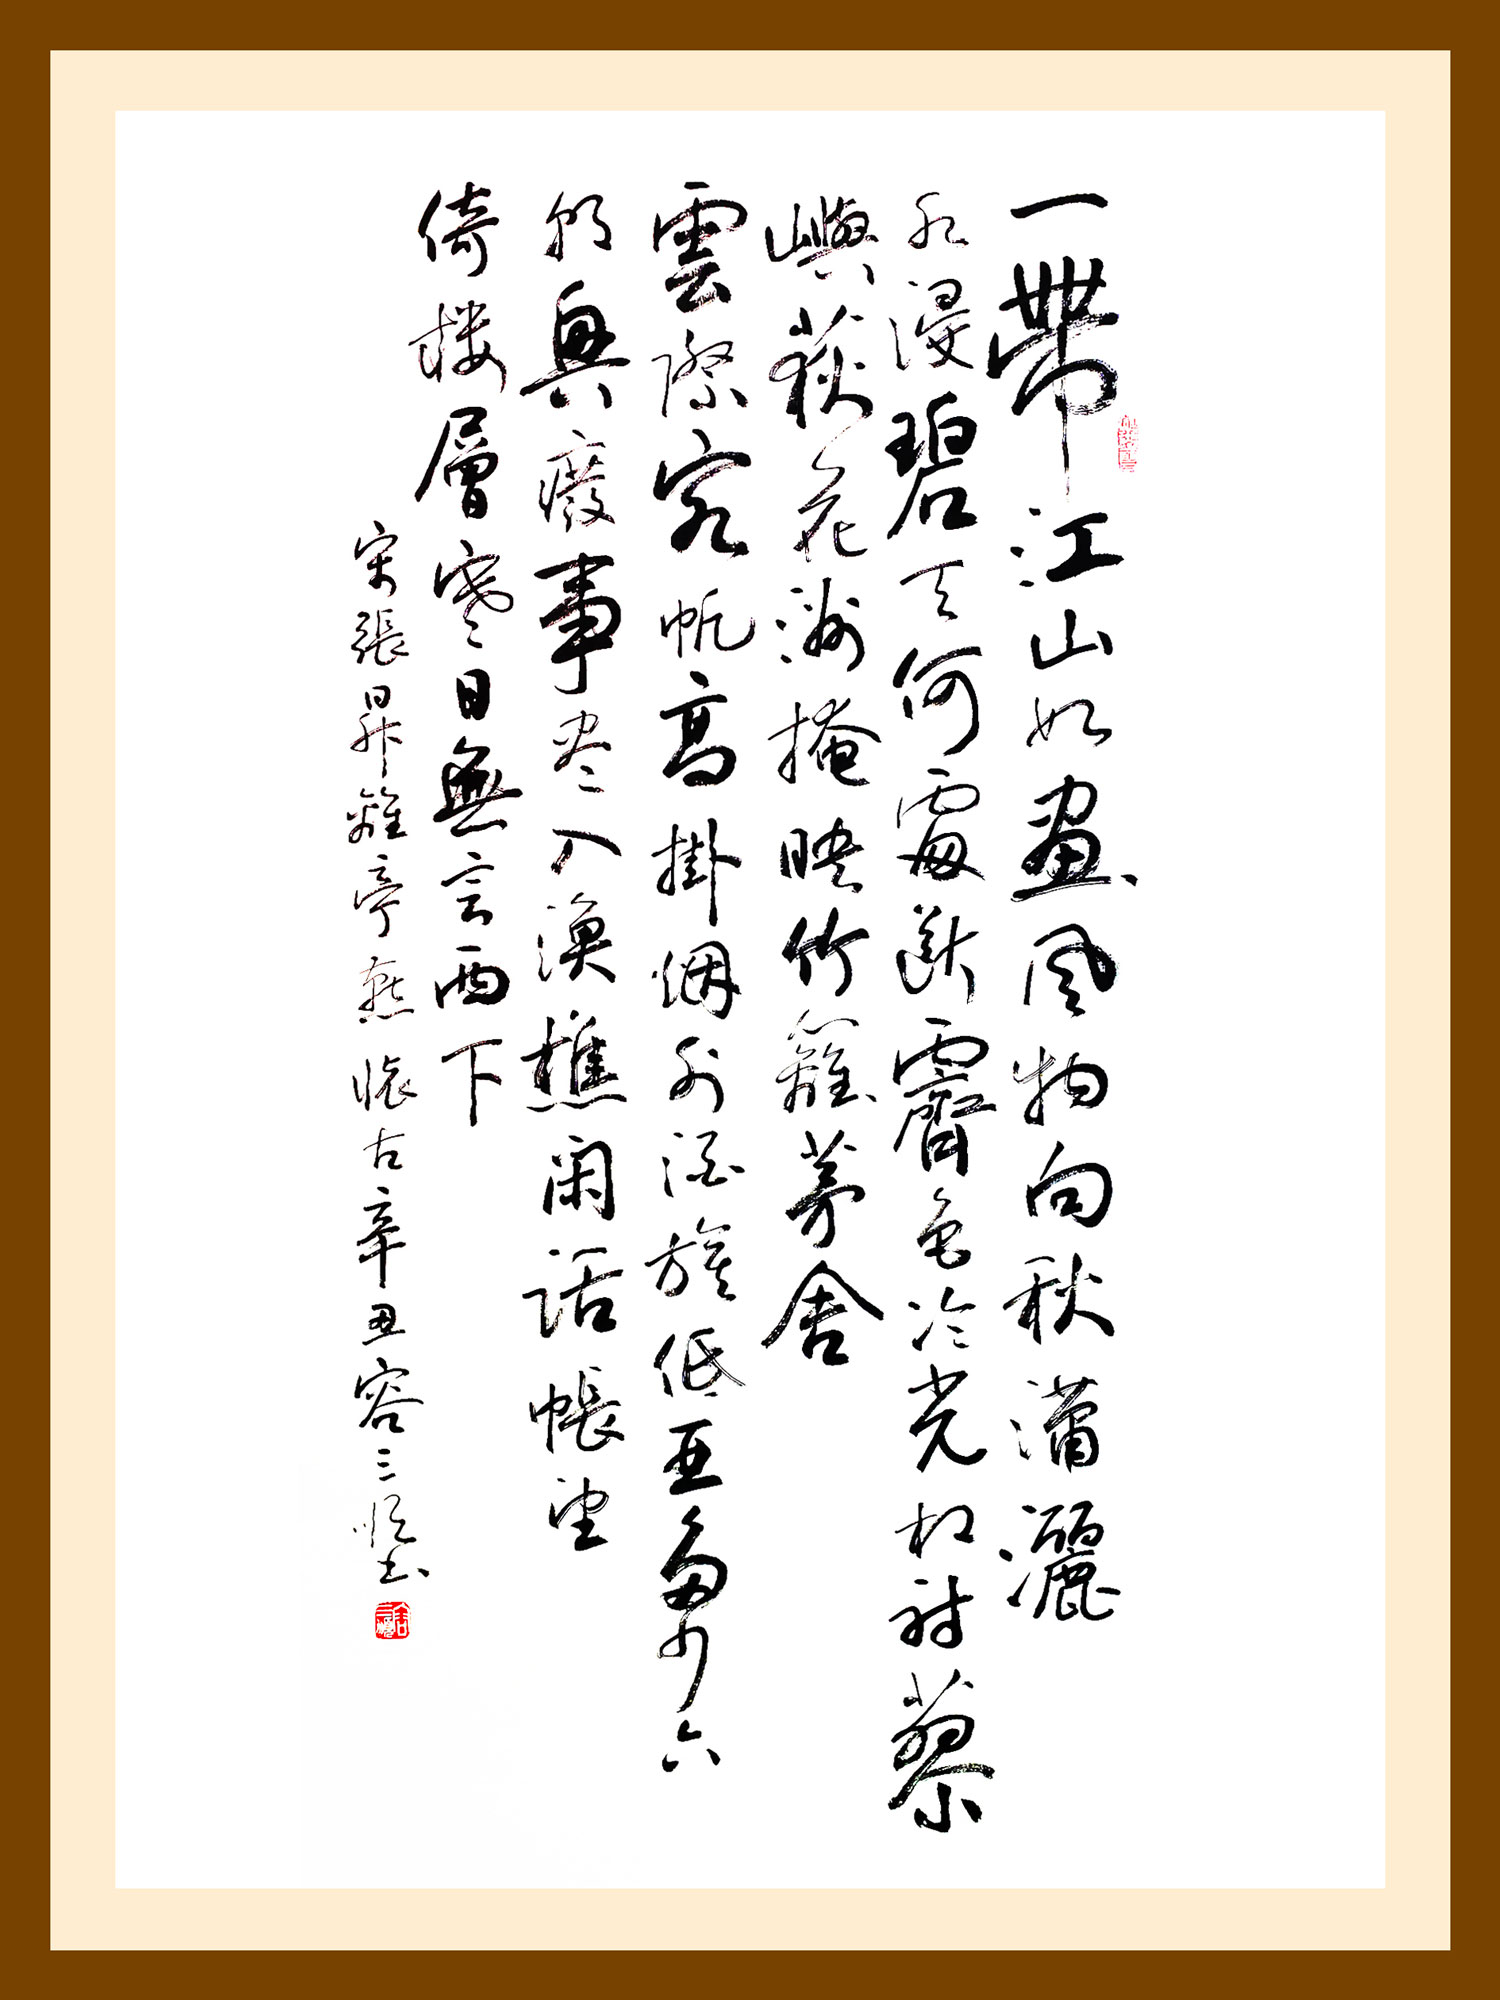 一帶江山如畫風物向秋瀟灑
水浸碧天何處斷霽色冷光相射蓼
嶼荻花洲掩映竹籬茅舍
雲際客帆高掛烟外酒旗低亞多少六
朝興廢事尽入漁樵閑話悵望
倚楼層寒日無言西下
宋張昇離亭燕懷古辛丑容三书